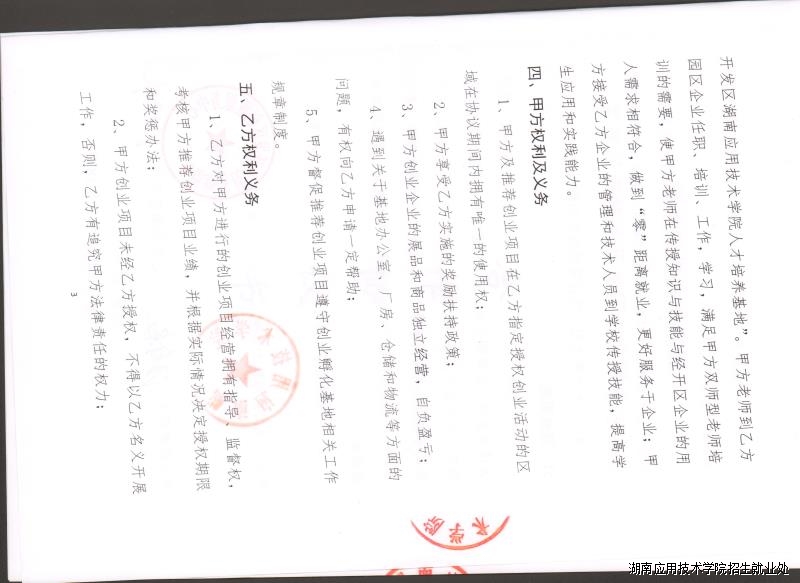 开发区湖南应用技术学院人才培养基地”。甲方老师到乙方
园区企业任职、培训、工作，学习，满足甲方双师型老师培
训的需要，使甲方老师在传授知识与技能与经开区企业的用
人需求相符合，做到“零”距离就业，更好服务于企业；甲
方接受乙方企业的管理和技术人员到学校传授技能，提高学
生应用和实践能力。
四、甲方权利及义务
1、甲方及推荐创业项目在乙方指定授权创业活动的区
域在协议期间内拥有唯一的使用权；
2、甲方享受乙方实施的奖励扶持政策；
3、甲方创业企业的展品和商品独立经营，自负盈亏；
4、遇到关于基地办公室、厂房、仓储和物流等方面的
问题，有权向乙方申请一定帮助；
5、甲方督促推荐创业项目遵守创业孵化基地相关工作
规章制度。
五、乙方权利义务
1、乙方对甲方进行的创业项目经营拥有指导、监督权，
考核甲方推荐创业项目业绩，并根据实际情况决定授权期限
和奖惩办法；
2、甲方创业项目未经乙方授权，不得以乙方名义开展
工作，否则，乙方有追究甲方法律责任的权力；
3
术学院
湖南应用技术学院招生就业处